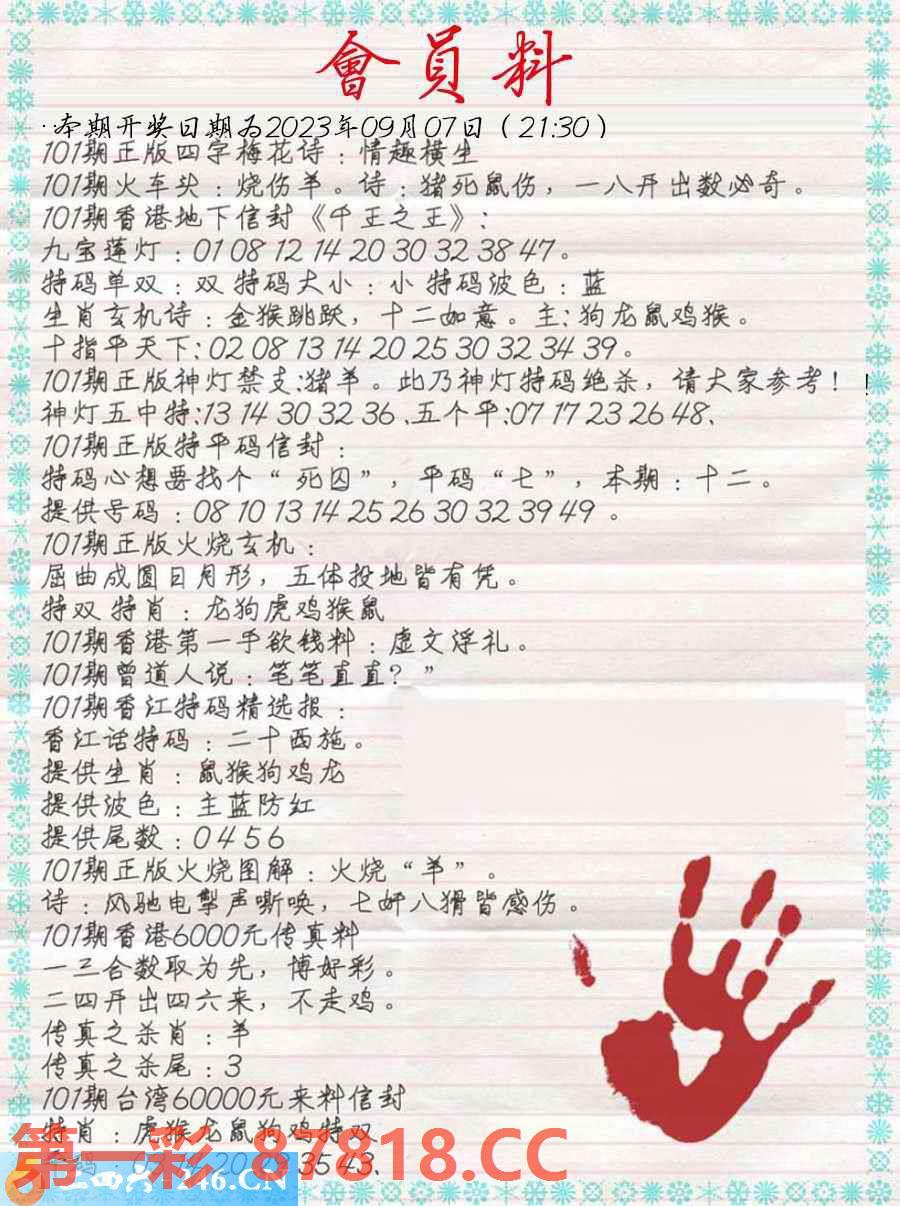 會員料
·本期开奖日期为2023年09月07日（21:30）
101期正版四字梅花诗：情趣横生
101期火车头：烧伤羊。诗：猪死鼠伤，一八开出数必奇。
101期香港地下信封《千王之王》：
九宝莲灯：01 08 12 14 20 30 32 38 47。
特码单双：双 特码大小：小 特码波色：蓝
生肖玄机诗：金猴跳跃，十二如意。主：狗龙鼠鸡猴。
十指平天下：02 08 13 14 20 25 30 32 34 39。
101期正版神灯禁支：猪羊。此乃神灯特码绝杀，请大家参考！！
神灯五中特：13 14 30 32 36、五个平：07 17 23 26 48、
101期正版特平码信封：
特码心想要找个“死囚”，平码“七”，本期：十二。
提供号码：08 10 13 14 25 26 30 32 39 49 。
101期正版火烧玄机：
屈曲成圆日月形，五体投地皆有凭。
特双 特肖：龙狗虎鸡猴鼠
101期香港第一手欲钱料：虚文浮礼。
101期曾道人说：笔笔直直？”
101期香江特码精选报：
香江话特码：二十西施。
提供生肖：鼠猴狗鸡龙
提供波色：主蓝防红
提供尾数：0 4 5 6
101期正版火烧图解：火烧“羊”。
诗：风驰电掣声嘶唤，七奸八猾皆感伤。
101期香港6000元传真料
一三合数取为先，博好彩。
二四开出四六来，不走鸡。
传真之杀肖：羊
传真之杀尾：3
101期台湾60000元来料信封
特肖：虎猴龙鼠狗鸡特双
35 43、
第一彩 87818.CC
246.CN